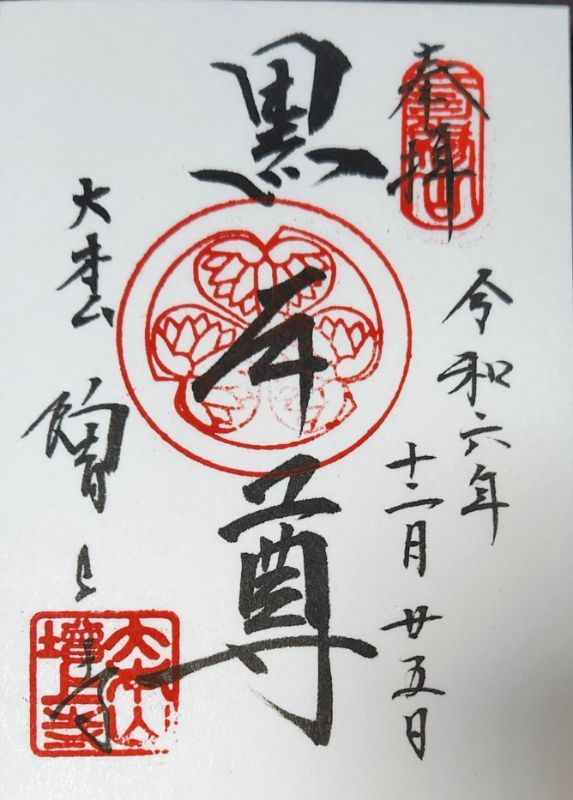 奉拝
令和六年
十二月廿五日
黒本尊
大本山 增上寺
大本山
增上寺